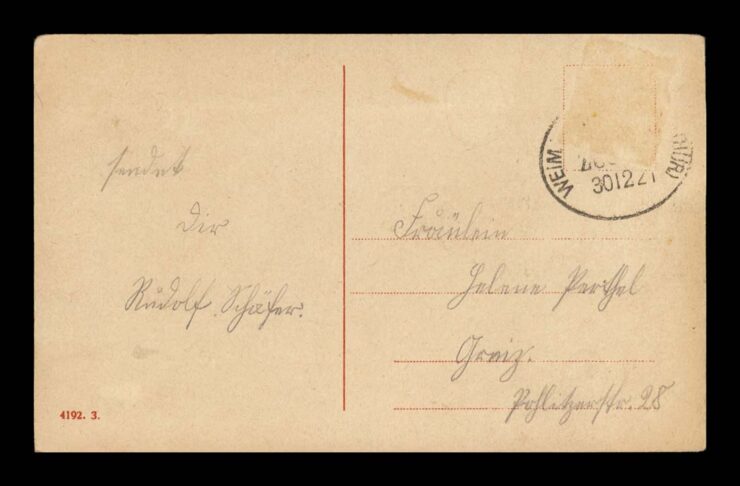 sendet
Dir
Rudolf Schäfer.
4192. 3.
WEIM
301221
Fräulein
Helene Perthel
Greiz.
Pohlitzerstr. 28